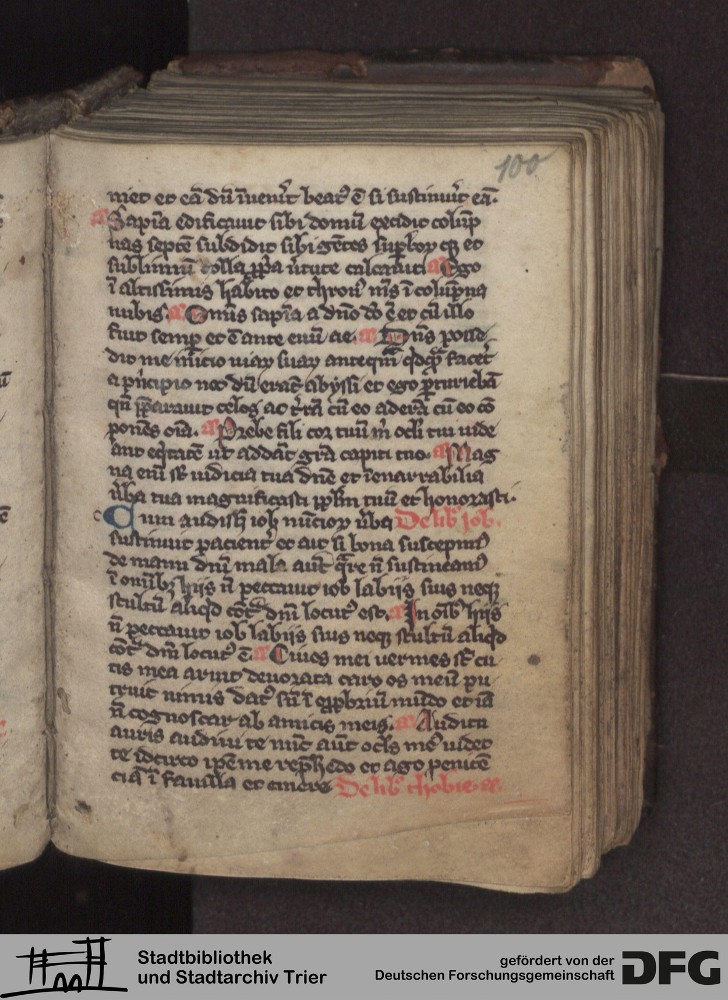 100
niet et eā dū īuen̄it beat᷒ ē si sustinu̾it eā.
Sapīa edificauit sibi domū excidit colūp
nas septē subdidit sibi gētes suꝑboꝝ qꝫ et
sublimiū colla ꝓp̄a v̾tute calcauit Ego
ī altissimis habito et thron᷒ m̄s ī colūpna
nubis. Omīs sapīa a dn̄o dō ē et cū illo
fuit semꝑ et ē ante euū ae. Dn̄s posse
dit me īnicio uiaꝝ suaꝝ anteqᷓm qⁱdqᷓm facet̾
a pⁱncipio nōdū erāt abyssi et ego ꝑturiebā
qn̄ p̄parauit celos ac t̾rā cū eo aderā cū eo cō
ponēs oīa. Prebe fili cor tuū m̄ ocl̄i tui uide
ant eqⁱtatē ut addat᷒ gr̄a capiti tuo. Mag
na eni sūt iudicia tua dn̄e et īenarrabilia
v̾ba tua magnificasti pp̄lm tuū et honorasti.
Cum audisset iob nūcioꝝ v̾ba De lib᷒ Job.
sustinuit pacient̾ et ait si bona suscepim᷒
de manu dn̄i mala aūt qᷓre nō sustineam᷒
ī omibꝫ hiis nō peccauit iob labiis suis neqꝫ
stultū aliqⁱd cōt̾ dm̄ locut᷒ est. In oīb᷒ hiis
nō peccauit iob labiis suis neqꝫ stultū aliqⁱd
cōt̾ dm̄ locut᷒ ē. Ciues mei uermes sūt cu
tis mea aruit deuorata caro os meū pu
truit nimis dat᷒ sū ī opp̄briū mūdo et iā
nō cognoscar ab amicis meis. Auditu
auris audiui te nūc aūt ocl̄s me᷒ uidet
te idcirco ip̄e me rep̄hēdo et ago penitē
ciā ī fauilla et cinere De lib᷒ thobie
Stadtbibliothek
und Stadtarchiv Trier
gefördert von der
Deutschen Forschungsgemeinschaft
DFG